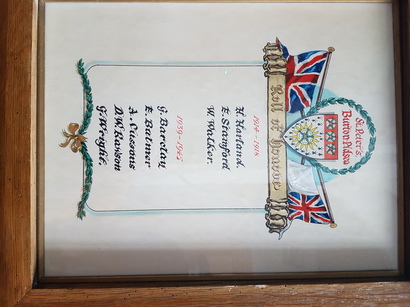 St. Peter's
Burton Pidsea
Roll of Honour
1914-1918
H. Harland.
E. Stamford
W. Walker.
1939-1945
G. Barclay
E. Balmer
A. Cussons
D. W. Rawson
G. Wright.